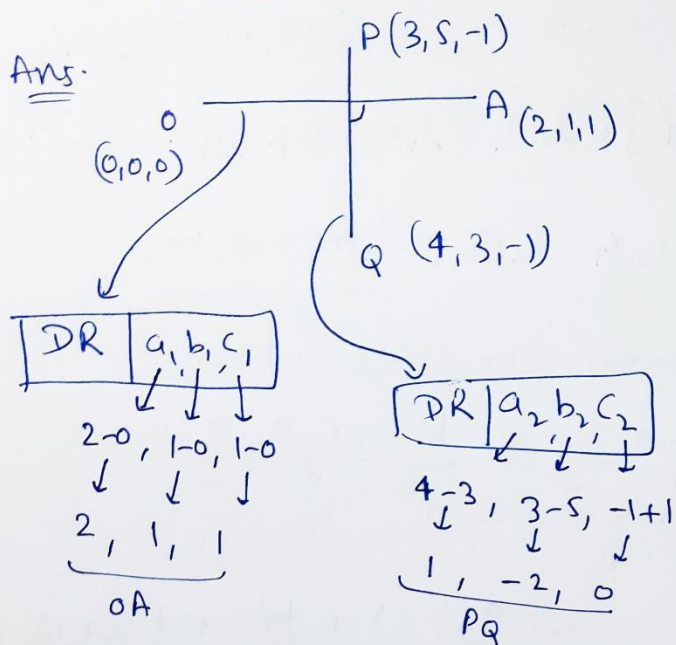 Ans.
P(3,5,-1)
O
(0,0,0)
A (2,1,1)
Q (4,3,-1)
DR a₁, b₁, c₁
2-0, 1-0, 1-0
2, 1, 1
OA
DR a₂, b₂, c₂
4-3, 3-5, -1+1
1, -2, 0
PQ